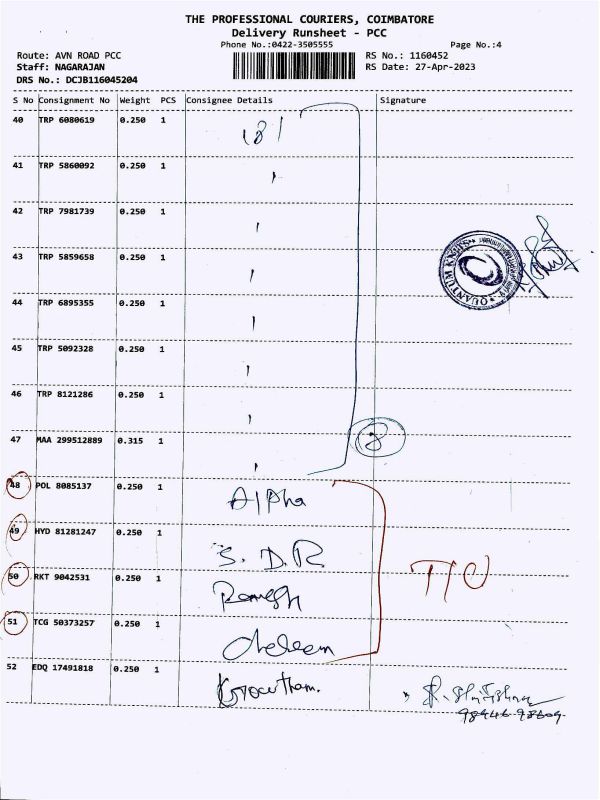 THE PROFESSIONAL COURIERS, COIMBATORE
Delivery Runsheet - PCC
Phone No.:0422-3505555 Page No.:4
Route: AVN ROAD PCC RS No.: 1160452
Staff: NAGARAJAN RS Date: 27-Apr-2023
DRS No.: DCJB116045204
S No Consignment No Weight PCS Consignee Details Signature
40 TRP 6080619 0.250 1
41 TRP 5860092 0.250 1
42 TRP 7981739 0.250 1
43 TRP 5859658 0.250 1
44 TRP 6895355 0.250 1
45 TRP 5092328 0.250 1
46 TRP 8121286 0.250 1
47 MAA 299512889 0.315 1
8
48 POL 8085137 0.250 1
Alpha
49 HYD 81281247 0.250 1
S. D. R
50 RKT 9042531 0.250 1
Ramesh
51 TCG 50373257 0.250 1
52 EDQ 17491818 0.250 1
QUANTUM KNITS